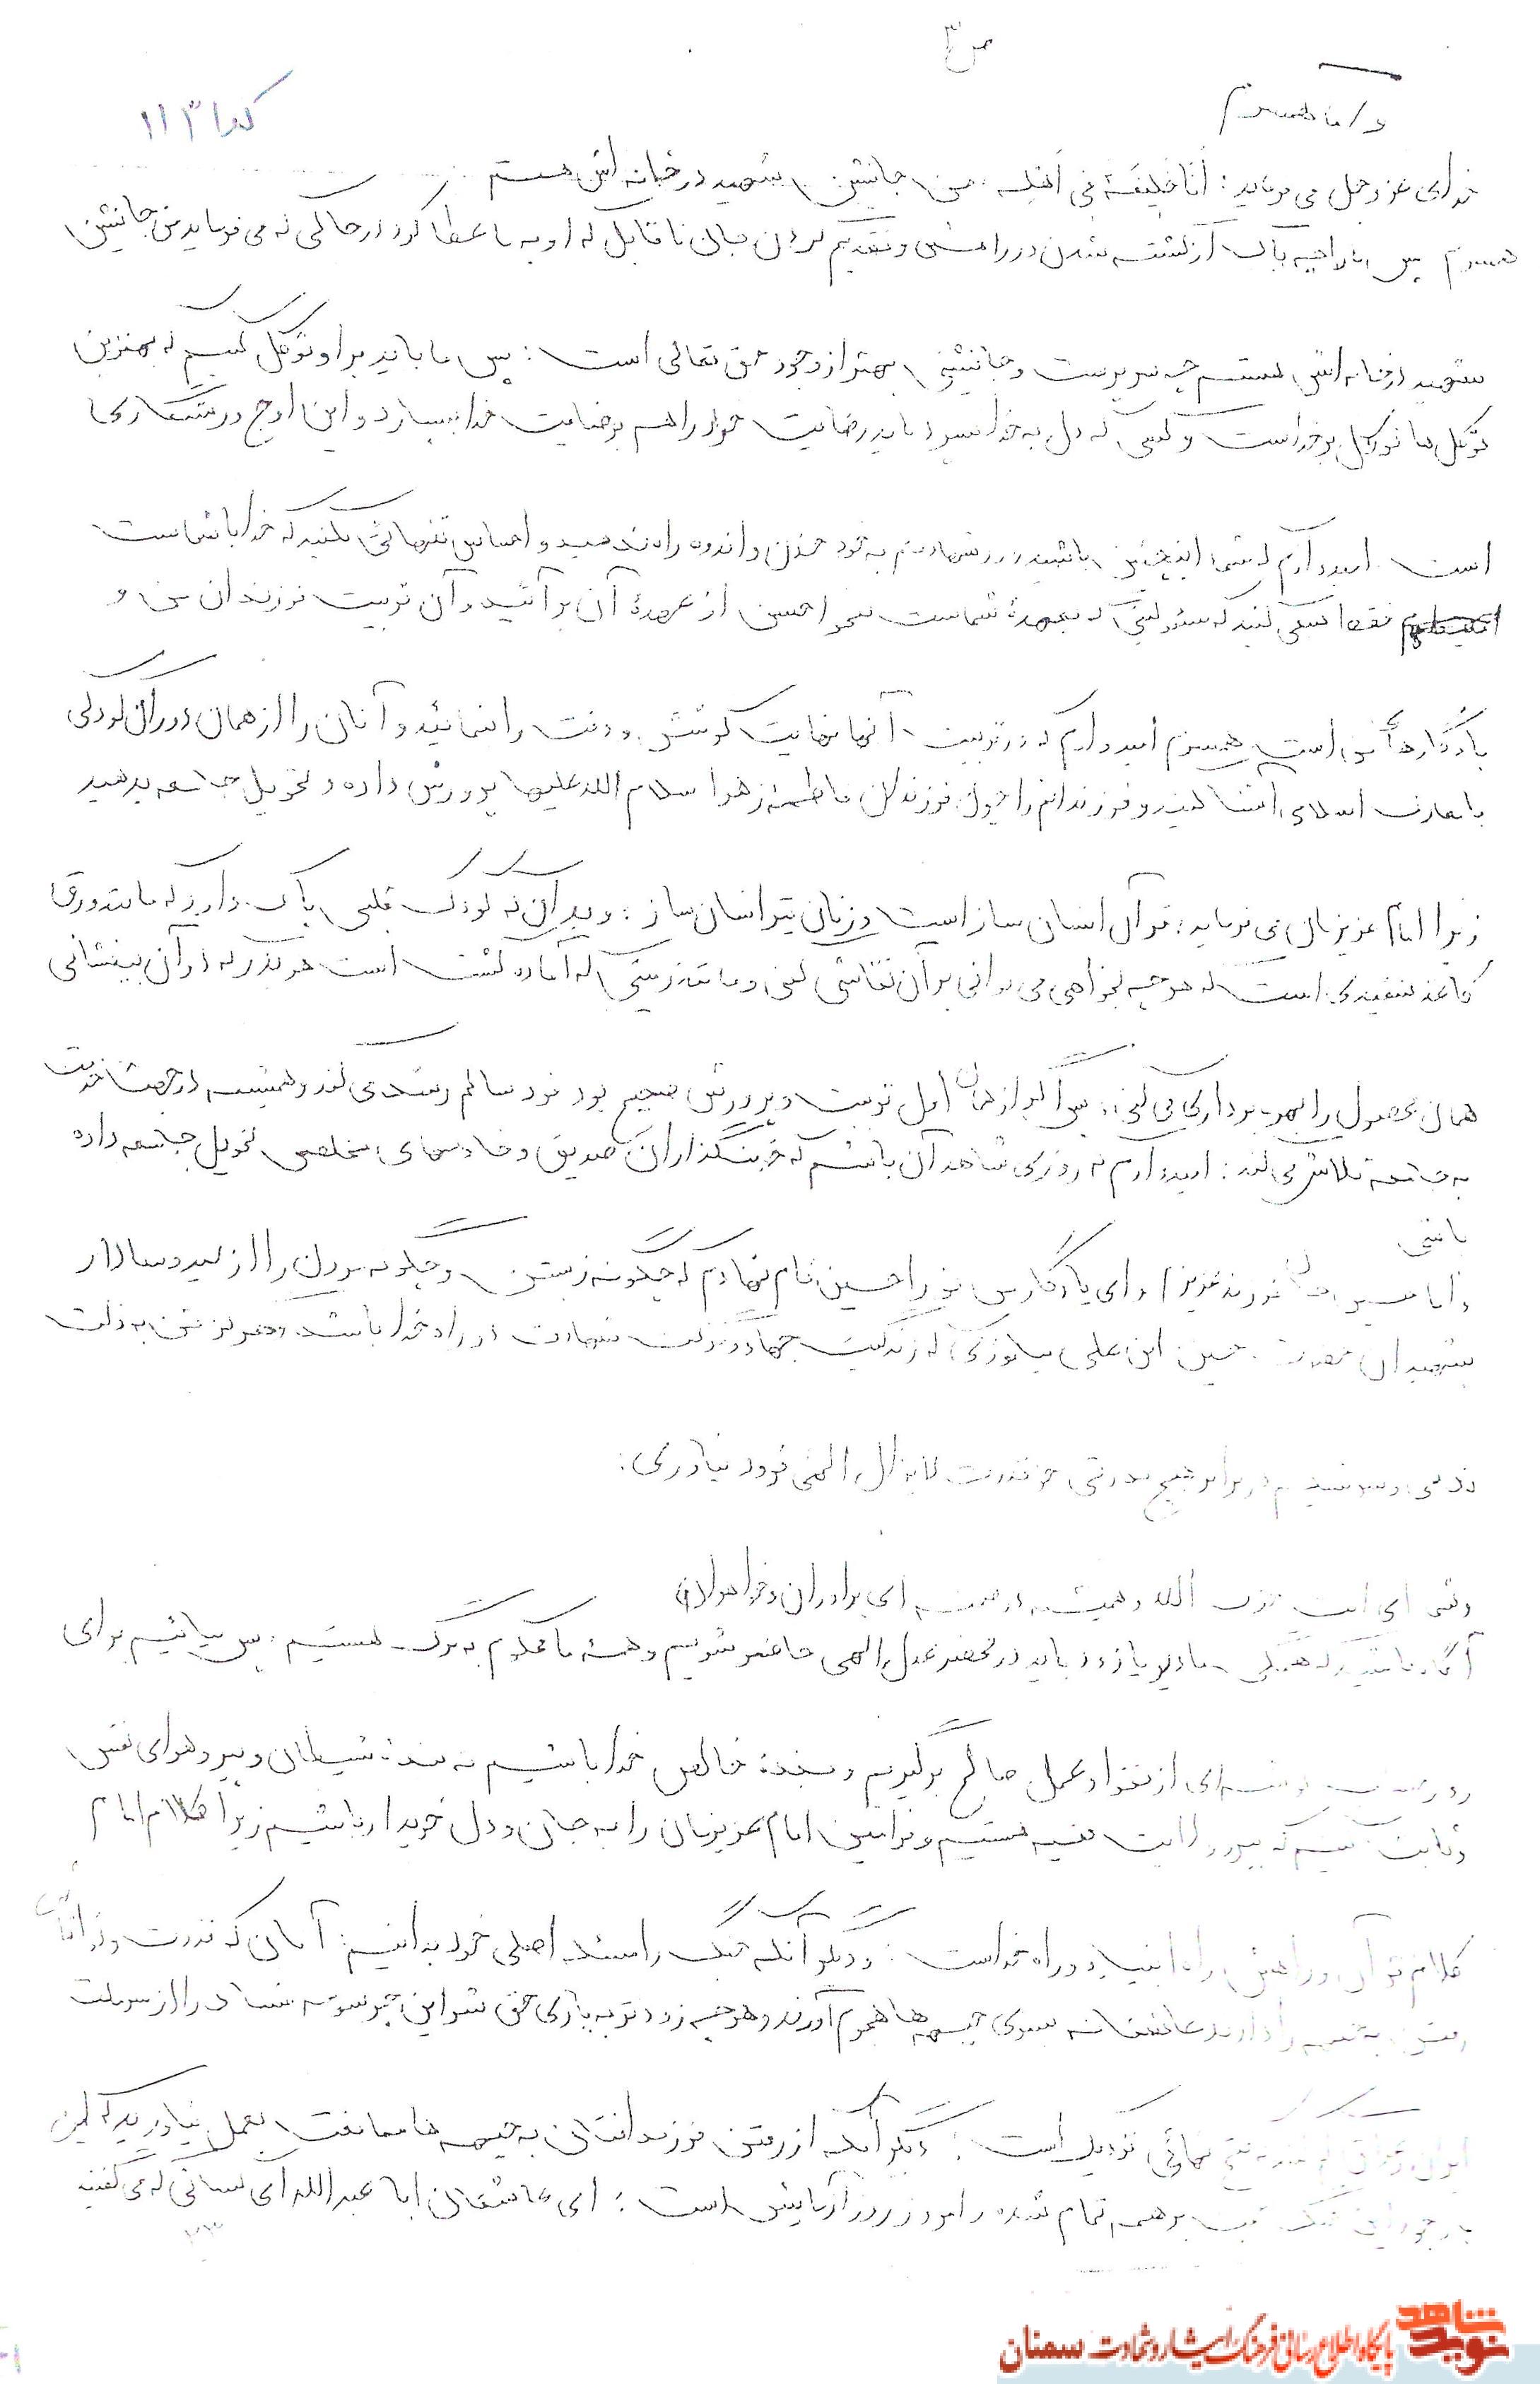 ص ۳
کد ۱۱۳۱
و اما همسرم
خدای عزوجل می فرماید: أنا خلیفته فی أهله من جانشین شهید در خانه اش هستم
همسرم پس ما را چه باک از کشته شدن در راهش و تقدیم کردن جان ناقابل که او به ما عطا کرد در حالی که می فرماید من جانشین
شهید در خانه اش هستم چه سرپرست و جانشینی بهتر از وجود حق تعالی است: پس ما باید بر او توکل کنیم که بهترین
توکل ها توکل بر خداست و کسی که دل به خدا سپرد باید رضایت خود را هم برضایت خدا بسپارد و این اوج رستگاری
است. امیدوارم که شما اینچنین باشید و در شهادتم به خود حزن و اندوه راه ندهید و احساس تنهائی نکنید که خدا با شماست
فقط سعی کنید که مسئولیتی که بعهدۀ شماست بنحو احسن از عهدۀ آن برآئید و آن تربیت فرزندان من و
یادگارهای من است همسرم امیدوارم که در تربیت آنها نهایت کوشش و دقت را بنمائید و آنان را از همان دوران کودکی
با معارف اسلامی آشنا کنید و فرزندانم را چون فرزندان فاطمۀ زهرا سلام الله علیها پرورش داده و تحویل جامعه بدهید
زیرا امام عزیزمان می فرماید: قرآن انسان ساز است و زنان نیز انسان ساز: و بدان که کودک قلبی پاک دارد که مانند ورق
کاغذ سفیدی است که هر چه بخواهی می توانی بر آن نقاشی کنی و مانند زمینی که آماده کشت است هر بذر که در آن بیفشانی
همان محصول را بهره برداری می کنی: پس اگر از همان اول تربیت و پرورش صحیح بود خود سالم رشد می کند و همیشه در جهت خدمت
به جامعه تلاش می کند: امیدوارم که روزی شاهد آن باشم که خدمتگذاران صدیق و خادمهای مخلصی تحویل جامعه داده
باشی
و اما حسین جان فرزند عزیزم و ای یادگار من تو را حسین نام نهادم که چگونه زیستن و چگونه مردن را از سید و سالار
شهیدان حضرت حسین ابن علی بیاموزی که زندگیت جهاد و مرگت شهادت در راه خدا باشد و هرگز تن به ذلت
ندهی و سر تسلیم در برابر هیچ قدرتی جز قدرت لایزال الهی فرود نیاوری:
و شما ای امت حزب الله و همیشه در صحنه ای برادران و خواهران
آگاه باشید که همگی ما دیر یا زود باید در محضر عدل الهی حاضر شویم و همۀ ما محکوم به مرگ هستیم. پس بیائیم برای
روز توشه ای از تقوا و عمل صالح برگیریم و بندۀ خالص خدا باشیم نه بندۀ شیطان و پیرو هوای نفس
و ثابت کنیم که پیرو ولایت فقیه هستیم و فرامین امام عزیزمان را به جان و دل خریدار باشیم زیرا کلام امام
کلام قرآن و راهش راه انبیاء و راه خداست: و دیگر آنکه جنگ را مسئله اصلی خود بدانیم: آنان که قدرت و توانائی
رفتن به جبهه را دارند عاشقانه بسوی جبهه ها هجوم آورند و هر چه زودتر به یاری حق شر این جرثومه فساد را از سر ملت
ایران نهائی نزدیک است: دیگر آنکه از رفتن فرزندانتان به جبهه ها ممانعت بعمل نیاورید که این
حجت بر همه تمام شده و امروز روز آزمایش است: ای عاشقان ابا عبدالله ای کسانی که می گفتید
نوید شاهد
پایگاه اطلاع رسانی فرهنگ ایثار و شهادت سمنان